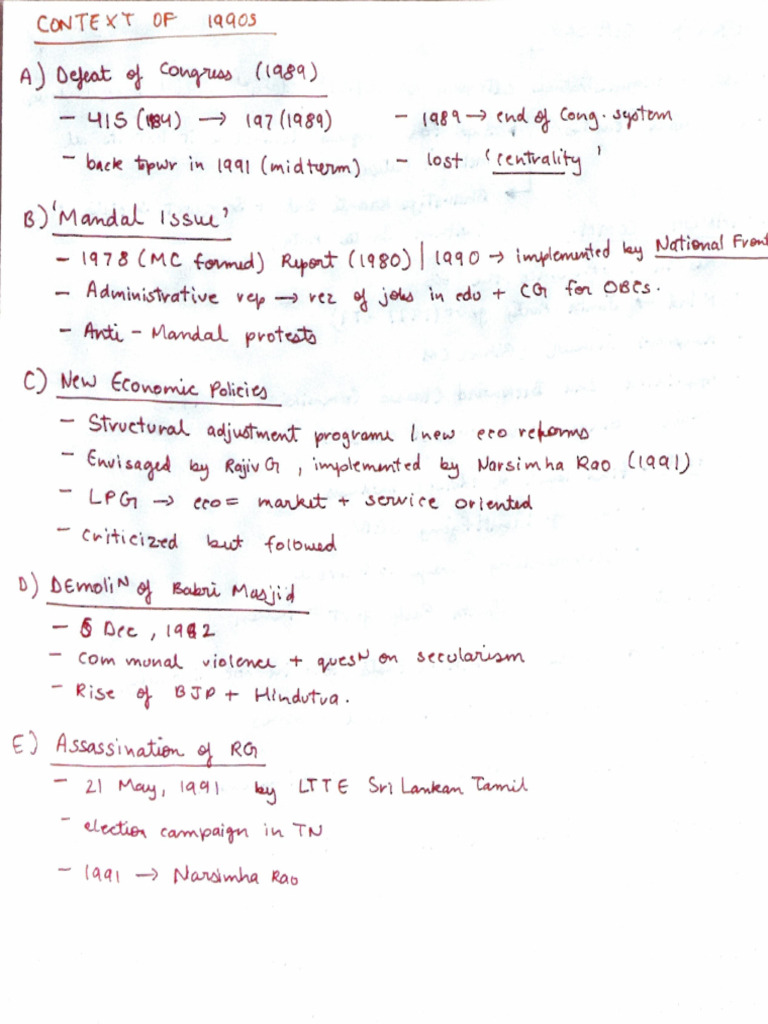 CONTEXT OF 1990s
A) Defeat of Congress (1989)
- 415 (84) → 197 (1989) - 1989 → end of Cong. system
- back to pwr in 1991 (midterm) - lost 'centrality'
B) 'Mandal Issue'
- 1978 (MC formed) Report (1980) | 1990 → implemented by National Front
- Administrative rep → rez of jobs in edu + CG for OBCs.
- Anti - Mandal protests
C) New Economic Policies
- Structural adjustment programe / new eco reforms
- Envisaged by Rajiv G, implemented by Narsimha Rao (1991)
- LPG → eco = market + service oriented
- criticized but followed
D) DEmoliN of Babri Masjid
- 6 Dec, 1992
- communal violence + quesN on secularism
- Rise of BJP + Hindutva.
E) Assassination of RG
- 21 May, 1991 by LTTE Sri Lankan Tamil
- election campaign in TN
- 1991 → Narsimha Rao